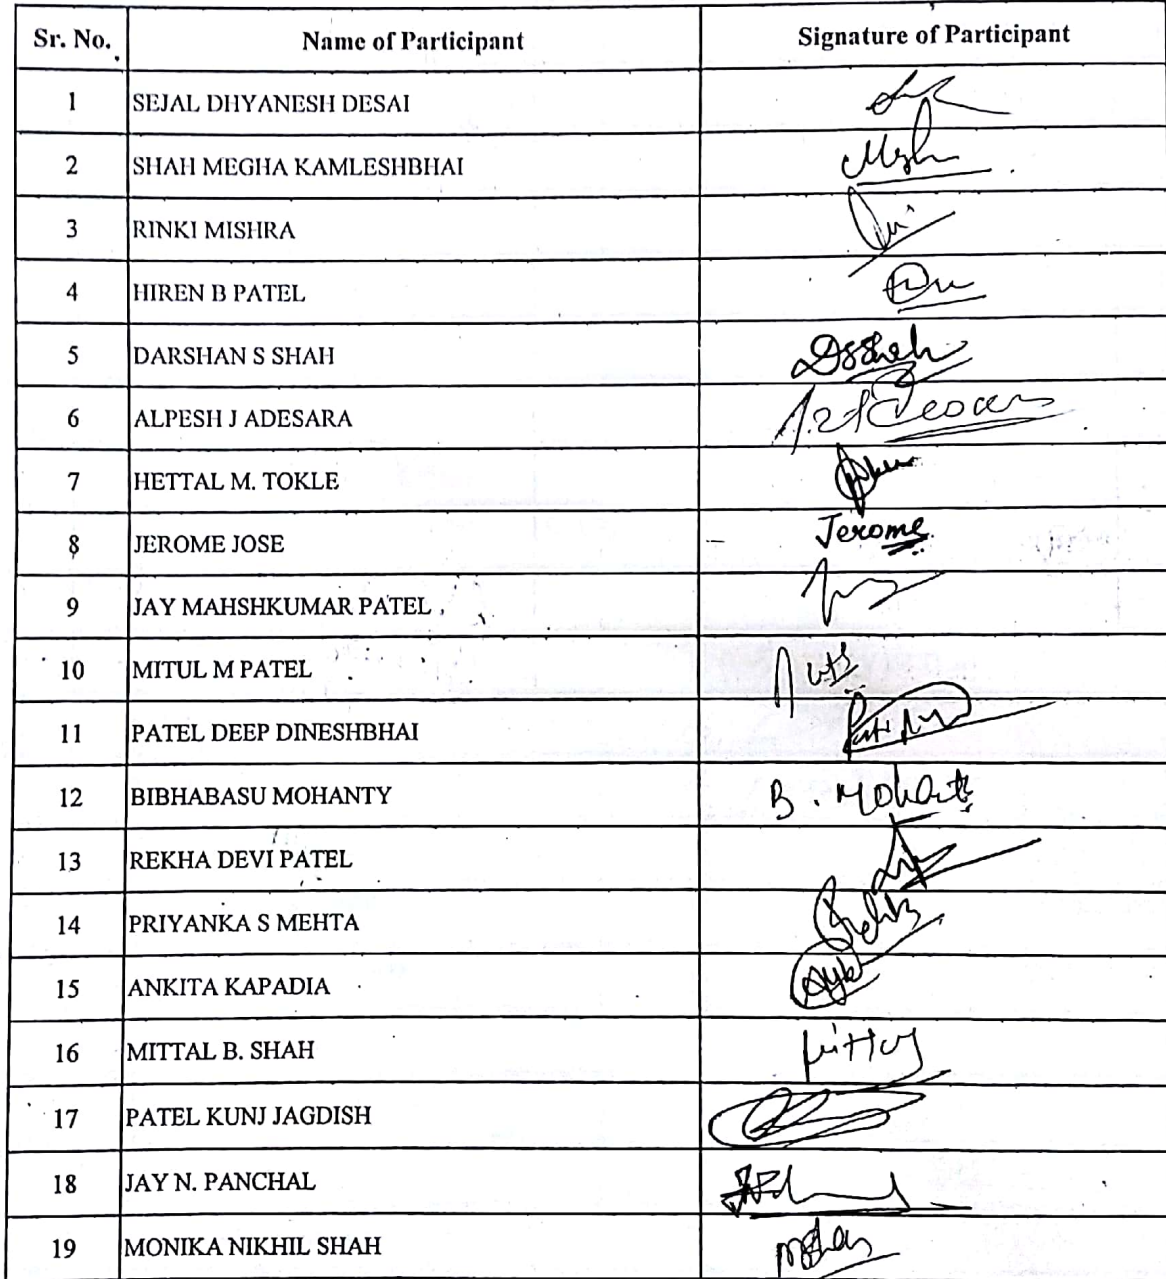 Sr. No. Name of Participant Signature of Participant
1 SEJAL DHYANESH DESAI
2 SHAH MEGHA KAMLESHBHAI
3 RINKI MISHRA
4 HIREN B PATEL
5 DARSHAN S SHAH DSShah
6 ALPESH J ADESARA
7 HETTAL M. TOKLE
8 JEROME JOSE Jerome
9 JAY MAHSHKUMAR PATEL
10 MITUL M PATEL
11 PATEL DEEP DINESHBHAI
12 BIBHABASU MOHANTY B. Mohanty
13 REKHA DEVI PATEL
14 PRIYANKA S MEHTA
15 ANKITA KAPADIA
16 MITTAL B. SHAH
17 PATEL KUNJ JAGDISH
18 JAY N. PANCHAL
19 MONIKA NIKHIL SHAH